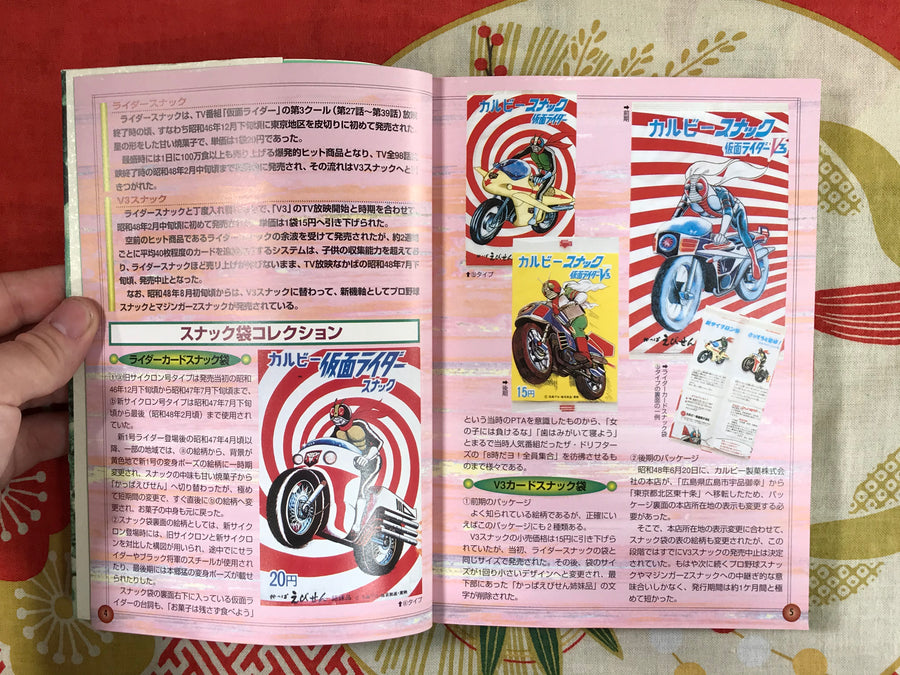 ライダースナック
ライダースナックは、TV番組「仮面ライダー」の第3クール（第27話～第39話）放映
終了時の頃、すなわち昭和46年12月下旬頃に東京地区を皮切りに初めて発売された
星の形をした甘い焼菓子で、単価は1袋20円であった。
最盛時には1日に100万食以上も売り上げる爆発的ヒット商品となり、TV全98話
映終了時の昭和48年2月中旬頃まで
に発売され、その流れはV3スナックへと
きつがれた。
V3スナック
ライダースナックと丁度入れ
で、「V3」のTV放映開始と時期を合わせて、
昭和48年2月中旬頃に初めて発売され
単価は1袋15円へ引き下げられた。
空前のヒット商品であるライダースナックの余波を受けて発売されたが、約2週
ごとに平均40枚程度のカードを
するシステムは、子供の収集能力を超えてお
り、ライダースナックほど売り上げが
ないまま、TV放映なかばの昭和48年7月下
旬頃、発売中止となった。
なお、昭和48年8月初旬頃からは、V3スナックに替わって、新機軸としてプロ野球
スナックとマジンガーZスナックが発売されている。
スナック袋コレクション
ライダーカードスナック袋
①②旧サイクロン号タイプは発売当初の昭和
46年12月下旬頃から昭和47年7月下旬頃まで、
⑤新サイクロン号タイプは昭和47年7月下旬
頃から最後（昭和48年2月頃）まで使用され
ていた。
新1号ライダー登場後の昭和47年4月頃以
降、一部の地域では、④の絵柄から、背景が
黄色地で新1号の変身ポーズの絵柄に一時期
変更され、スナックの中味も甘い焼菓子から
「かっぱえびせん」へ切り替わったが、極め
て短期間の変更で、すぐ直後に⑤の絵柄へ変更
され、お菓子の中身も元に戻った。
②スナック袋裏面の絵柄としては、新サイク
ロン登場時には、旧サイクロンと新サイクロン
を対比した構図が用いられ、途中でにせラ
イダーやブラック将軍のスチールが使用され
たり、最後期には本郷猛の変身ポーズが載せ
られたりした。
スナック袋の裏面右下に入っている仮面ラ
イダーの台詞も、「お菓子は残さず食べよう」
カルビー仮面ライダー
スナック
20円
かっぱえびせん 姉妹品
タイプ
4
カルビースナック
仮面ライダー
タイプ
カルビースナック
仮面ライダーV3
15円
後期
前期
カルビースナック
仮面ライダーV3
かっぱえびせん
新サイクロン号
ライダーカードスナック袋
タイプの裏面の一例
という当時のPTAを意識したものから、「女
の子には負けるな」「歯はみがいて寝よう」
とまるで当時人気番組だったザ・ドリフター
ズの「8時だヨ！全員集合」を彷彿させるも
のまで様々である。
V3カードスナック袋
①前期のパッケージ
よく知られている絵柄であるが、正確にい
えばこのパッケージにも2種類ある。
V3スナックの小売価格は15円に引き下げ
られていたが、当初、ライダースナックの袋と
同じサイズで発売された。その後、袋のサイ
ズが1回り小さいデザインへと変更され、最
下部にあった「かっぱえびせん姉妹品」の文
字が削除された。
②後期のパッケージ
昭和48年6月20日に、カルビー製菓株式会
社の本店が、「広島県広島市宇品御幸」から
「東京都北区東十条」へ移転したため、パッケ
ージ裏面の本店所在地の表示も変更する必要
があった。
そこで、本店所在地の表示変更に合わせて、
スナック袋の表の絵柄も変更されたが、この
段階ではすでにV3スナックの発売中止は決定
されていた。もはや次に続くプロ野球スナック
やマジンガーZスナックへの中継ぎ的な意
味合いしかなく、発行期間は約1ケ月間と極
めて短かった。
5